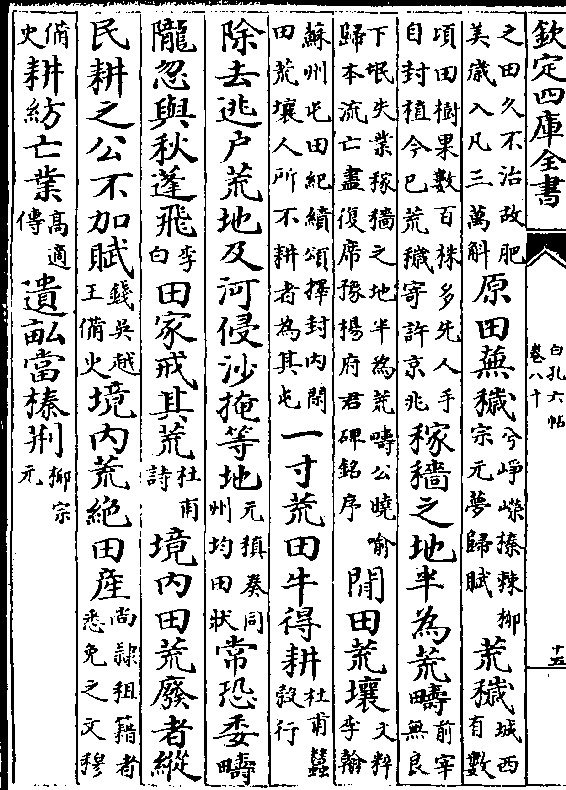 欽定四庫全書
白孔六帖
卷八十
十五
之田久不治故肥美歲入凡三萬斛原田蕪穢兮崢嶸榛棘柳宗元夢歸賦荒穢城西有數
項田樹果數百株多先人手自封植今已荒穢寄許京兆稼穡之地半為荒疇前宰無良
下氓失業稼穡之地半為荒疇公曉喻歸本流亡盡復席豫揚府君碑銘序閒田荒壤文粹李翰
蘇州屯田紀績頌擇封內閒田荒壤人所不耕者為其屯一寸荒田牛得耕杜甫蠶穀行
除去逃户荒地及河侵沙掩等地元稹奏同州均田狀常恐委疇
隴忽與秋蓬飛李白田家戒其荒杜甫詩境內田荒廢者縱
民耕之公不加賦錢吳越王備史境內荒絕田産尚隸租籍者悉免之文穆
備史耕紡亡業高適傳遺畝當榛荆柳宗元